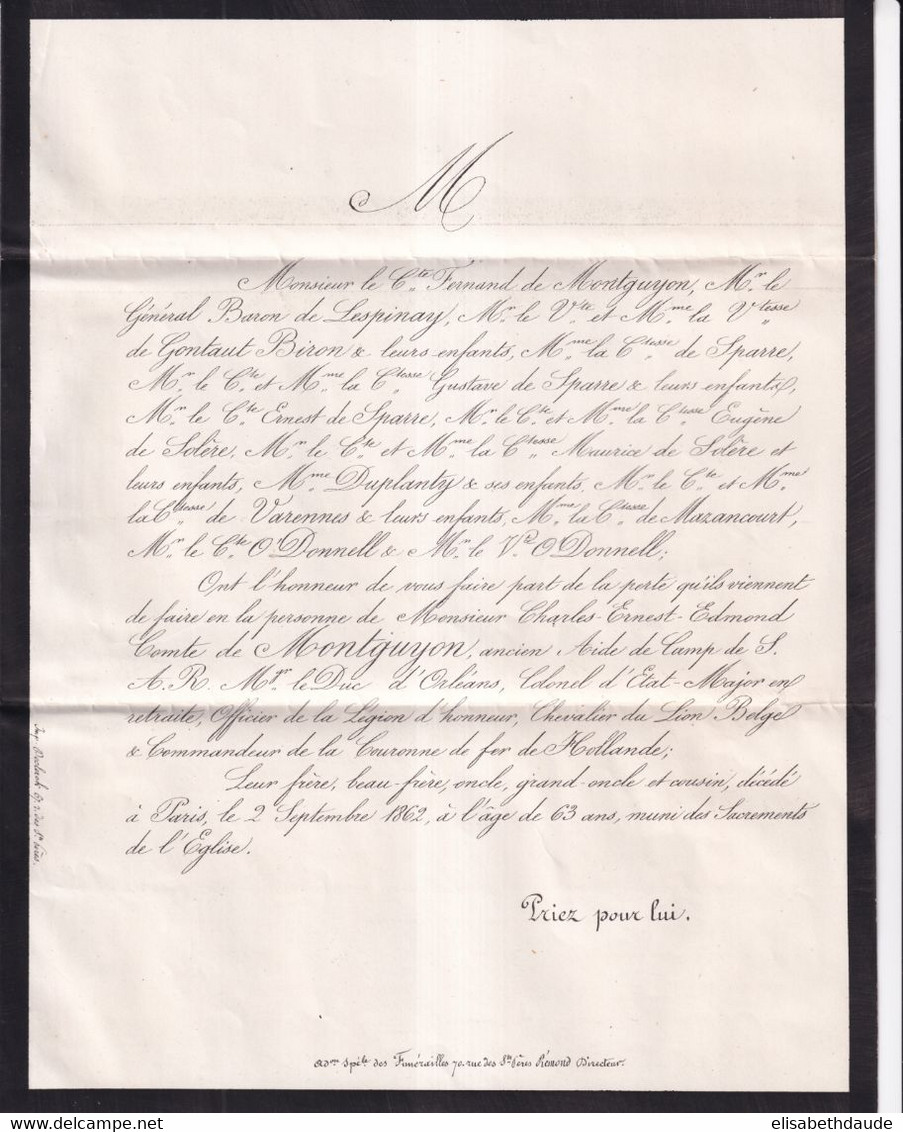 M
Monsieur le C.te Fernand de Montguyon, M.r le
Général Baron de Lespinay, M.r le V.te et M.me la V.tesse
de Gontaut Biron & leurs enfants, M.me la C.tesse de Sparre,
M.r le C.te et M.me la C.tesse Gustave de Sparre & leurs enfants,
M.r le C.te Ernest de Sparre, M.r le C.te et M.me la C.tesse Eugène
de Solère, M.r le C.te et M.me la C.tesse Maurice de Solère et
leurs enfants, M.me Duplanty & ses enfants, M.r le C.te et M.me
la C.tesse de Varennes & leurs enfants, M.me la C.tesse de Mazancourt,
M.r le C.te O'Donnell & M.r le V.te O'Donnell;
Ont l'honneur de vous faire part de la perte qu'ils viennent
de faire en la personne de Monsieur Charles-Ernest-Edmond
Comte de Montguyon, ancien Aide de Camp de S.
A. R. M.gr le Duc d'Orléans, Colonel d'Etat-Major en
retraite, Officier de la Légion d'honneur, Chevalier du Lion Belge
& Commandeur de la Couronne de fer de Hollande;
Leur frère, beau-frère, oncle, grand-oncle et cousin, décédé
à Paris, le 2 Septembre 1862, à l'âge de 63 ans, muni des Sacrements
de l'Eglise.
Priez pour lui.
Ad.on Spé.le des Funérailles 70. rue des S.ts Pères Rémond Directeur.
elisabethdaude